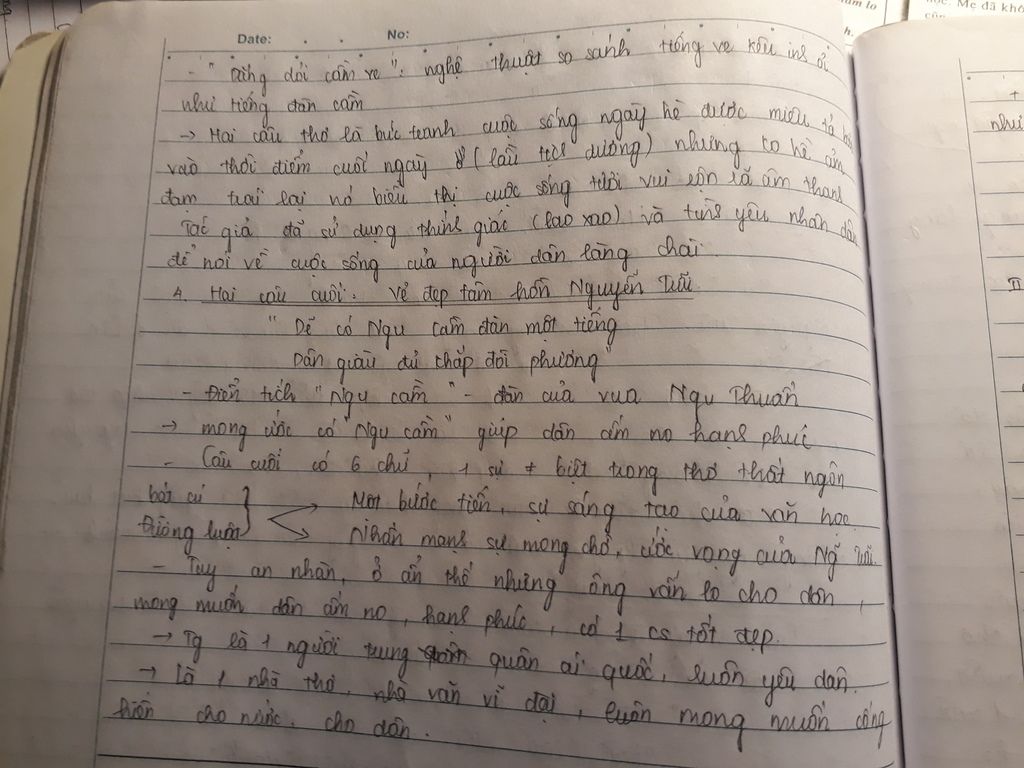 Date: No:
- "Dắng dỏi cầm ve": nghệ thuật so sánh tiếng ve kêu inh ỏi
như tiếng đàn cầm
→ Hai câu thơ là bức tranh cuộc sống ngày hè được miêu tả
vào thời điểm cuối ngày (lầu tịch dương) nhưng ko hề ảm
đạm trái lại nó biểu thị cuộc sống tười vui rộn rã âm thanh
Tác giả đã sử dụng thính giác (lao xao) và tình yêu nhân dân
để nói về cuộc sống của người dân làng chài.
4. Hai câu cuối. Vẻ đẹp tâm hồn Nguyễn Trãi.
" Dẽ có Ngu cầm đàn một tiếng
Dân giàu đủ khắp đòi phương"
- Điển tích "Ngu cầm" - đàn của vua Ngu Thuấn
→ mong ước có "Ngu cầm" giúp dân ấm no hạnh phúc
- Câu cuối có 6 chữ, 1 sự + biệt trong thơ thất ngôn
bát cú } → Một bước tiến, sự sáng tạo của văn học.
Đường luật → Nhấn mạnh sự mong chờ, ước vọng của Ng Trãi.
- Tuy an nhàn, ở ẩn thế nhưng ông vẫn lo cho dân,
mong muốn dân ấm no, hạnh phúc, có 1 cs tốt đẹp.
→ Tg là 1 người trung quân ái quốc, luôn yêu dân.
→ Là 1 nhà thơ, nhà văn vĩ đại, luôn mong muốn cống
hiến cho nước. cho dân.
Mẹ đã khô
+
như
II